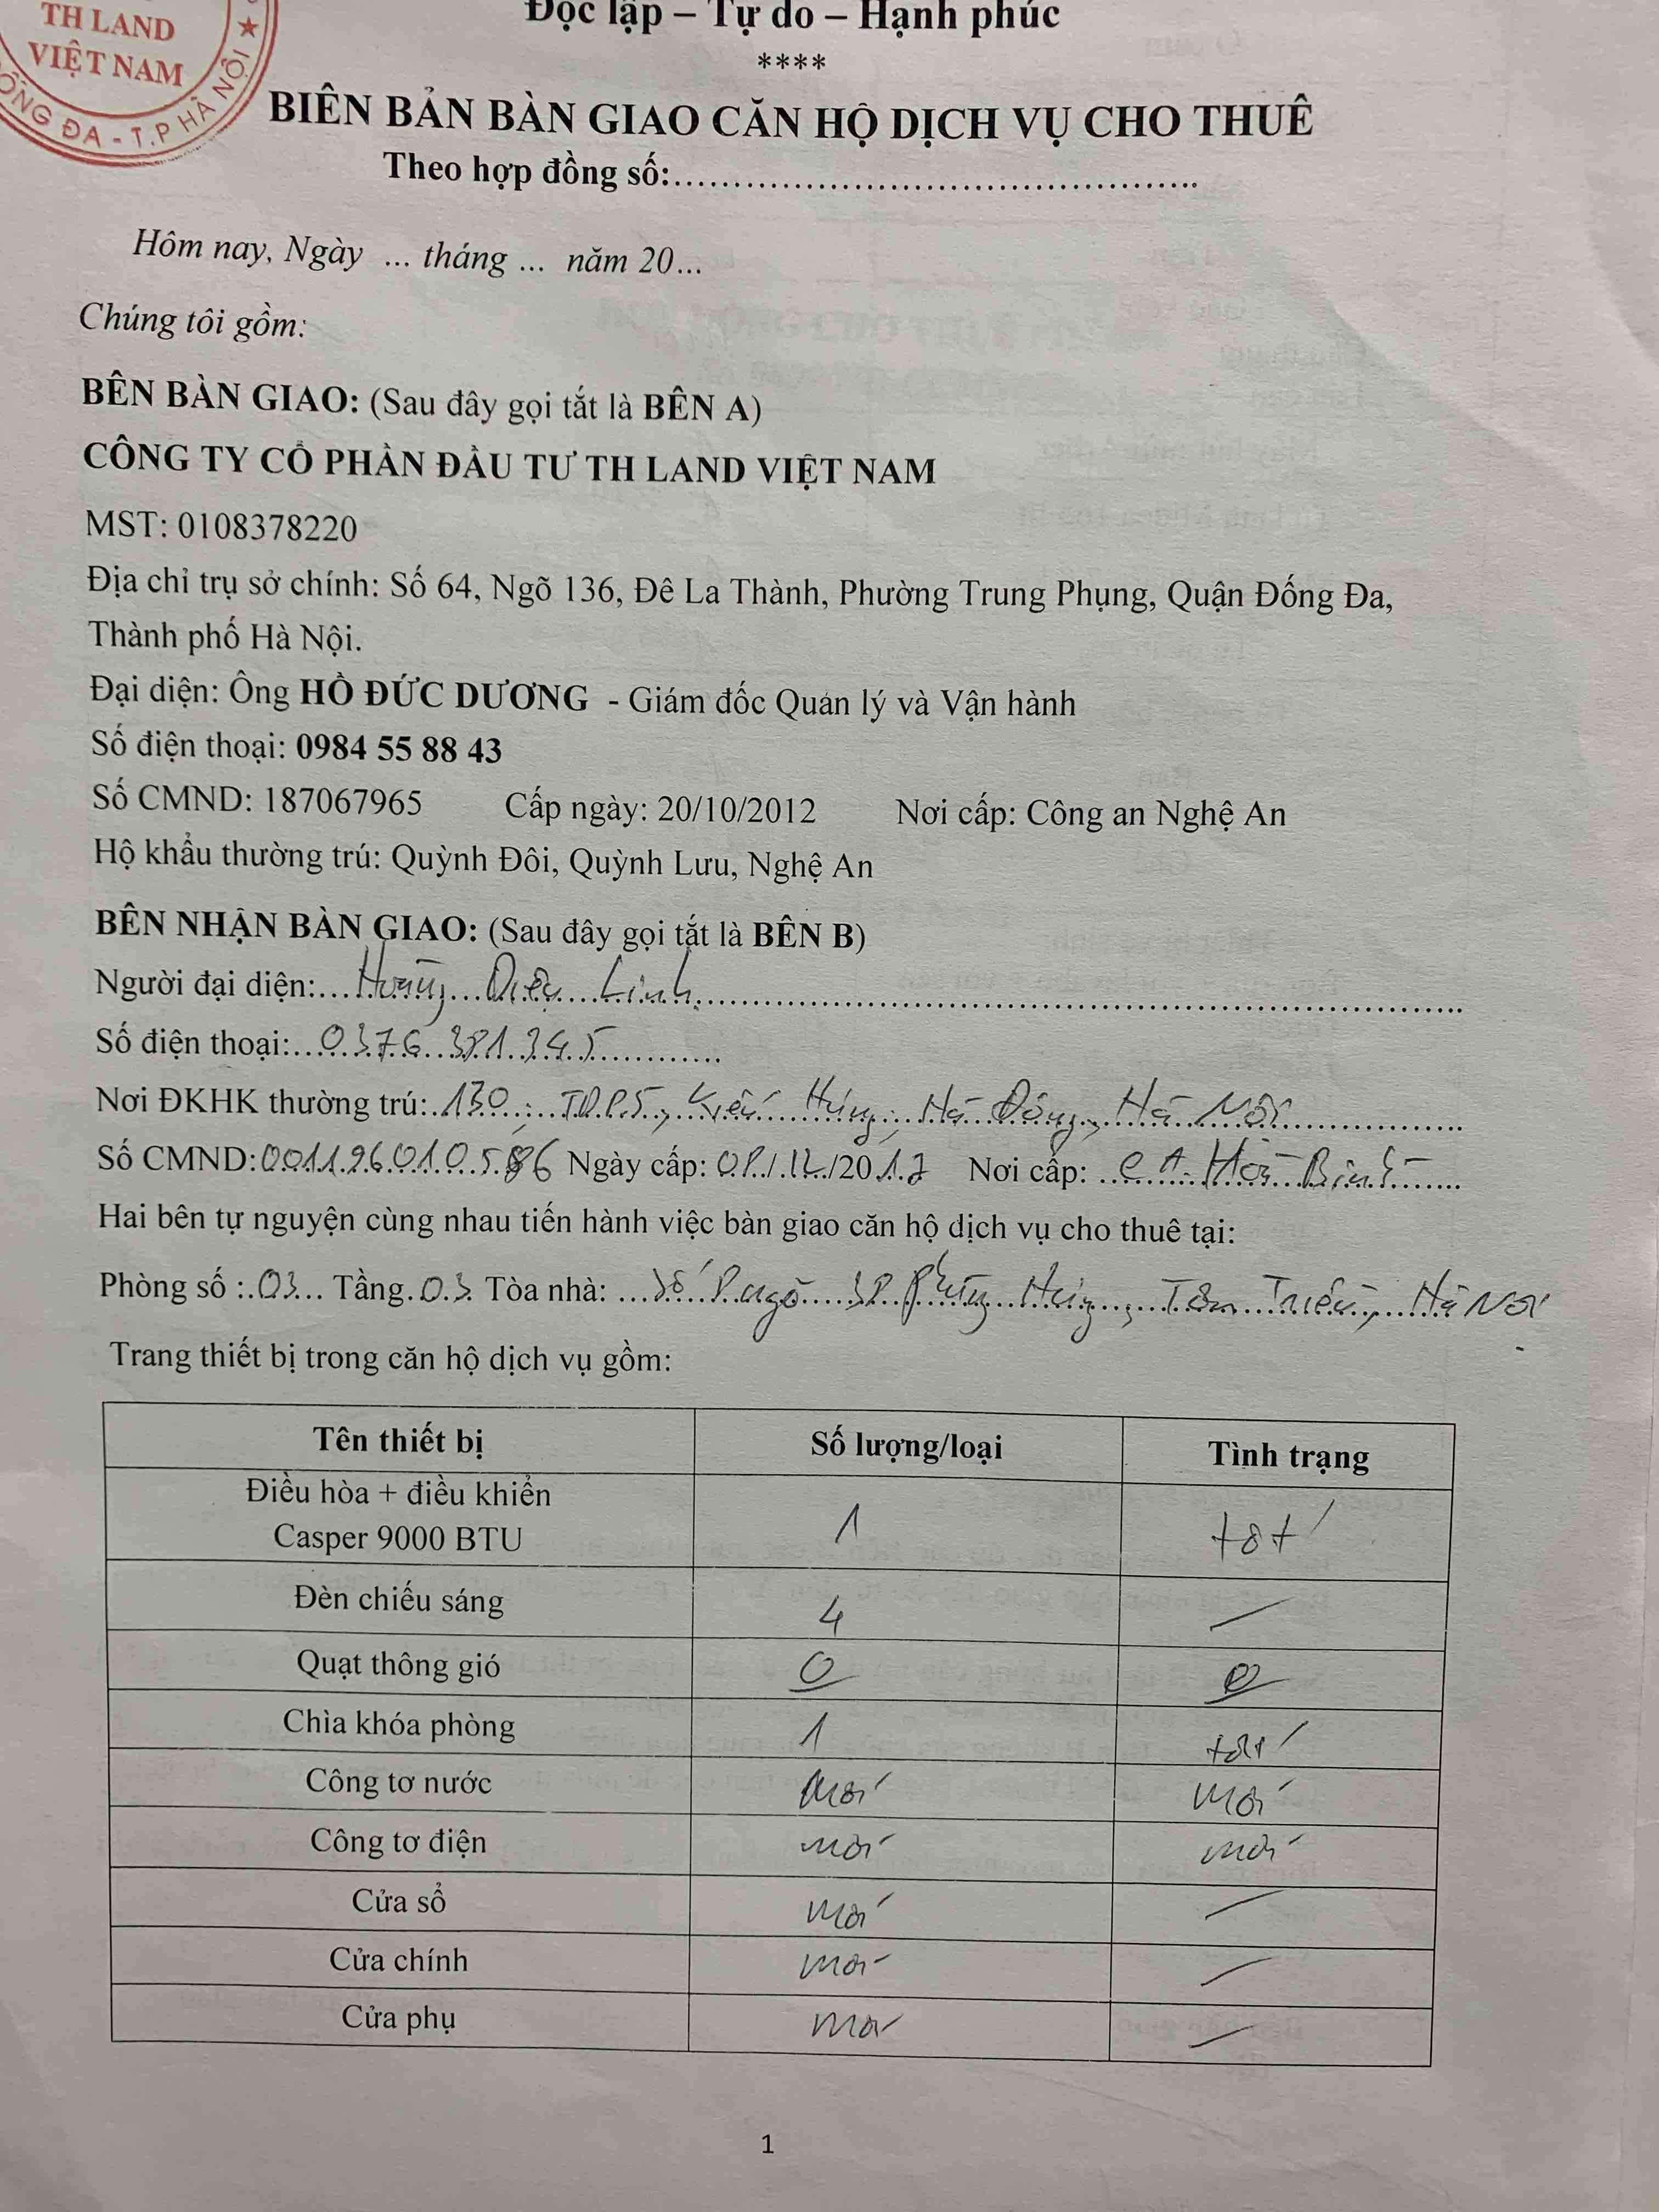 TH LAND
VIỆT NAM
ĐỐNG ĐA - T.P HÀ NỘI ★
Độc lập – Tự do – Hạnh phúc
****
BIÊN BẢN BÀN GIAO CĂN HỘ DỊCH VỤ CHO THUÊ
Theo hợp đồng số:.......................................................
Hôm nay, Ngày ... tháng ... năm 20...
Chúng tôi gồm:
BÊN BÀN GIAO: (Sau đây gọi tắt là BÊN A)
CÔNG TY CỔ PHẦN ĐẦU TƯ TH LAND VIỆT NAM
MST: 0108378220
Địa chỉ trụ sở chính: Số 64, Ngõ 136, Đê La Thành, Phường Trung Phụng, Quận Đống Đa,
Thành phố Hà Nội.
Đại diện: Ông HỒ ĐỨC DƯƠNG - Giám đốc Quản lý và Vận hành
Số điện thoại: 0984 55 88 43
Số CMND: 187067965 Cấp ngày: 20/10/2012 Nơi cấp: Công an Nghệ An
Hộ khẩu thường trú: Quỳnh Đôi, Quỳnh Lưu, Nghệ An
BÊN NHẬN BÀN GIAO: (Sau đây gọi tắt là BÊN B)
Người đại diện: Hoàng Diệu Linh
Số điện thoại: 0376
Nơi ĐKHK thường trú: 130, Kiến Hưng, Hà Đông, Hà Nội
Số CMND: Ngày cấp: Nơi cấp: CA Hòa Bình
Hai bên tự nguyện cùng nhau tiến hành việc bàn giao căn hộ dịch vụ cho thuê tại:
Phòng số : 03 Tầng 03 Tòa nhà: Số ngõ Phùng Hưng, Tân Triều, Hà Nội
Trang thiết bị trong căn hộ dịch vụ gồm:
Tên thiết bị Số lượng/loại Tình trạng
Điều hòa + điều khiển
Casper 9000 BTU 1 tốt
Đèn chiếu sáng 4 —
Quạt thông gió 0 0
Chìa khóa phòng 1 tốt
Công tơ nước mới mới
Công tơ điện mới mới
Cửa sổ mới —
Cửa chính mới —
Cửa phụ mới —
1